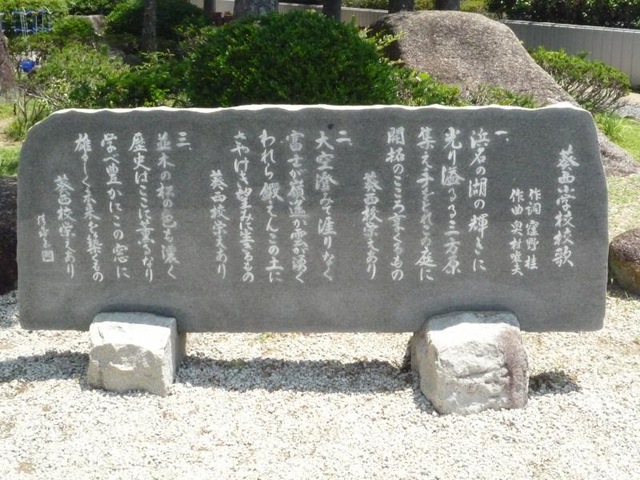 葵西小学校校歌
作詞 窪野 桂
作曲 奥村 夫
一、
浜名の湖の輝きに
光り溢るる三方原
集え この庭に
開拓のこころ享くるもの
葵西校栄えあり
二、
大空澄みて涯りなく
富士が嶺遥か雲湧く
われら鍛えんこの土に
さやけき望みに生くるもの
葵西校栄えあり
三、
並木の松の色も濃く
歴史はここに薫るなり
学べ豊かにこの窓に
雄々しく未来を築くもの
葵西校栄えあり